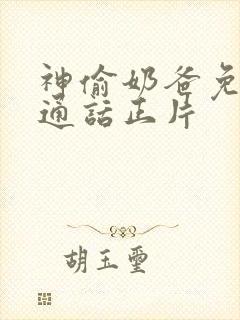 神偷奶爸免
通話正片
胡玉璽